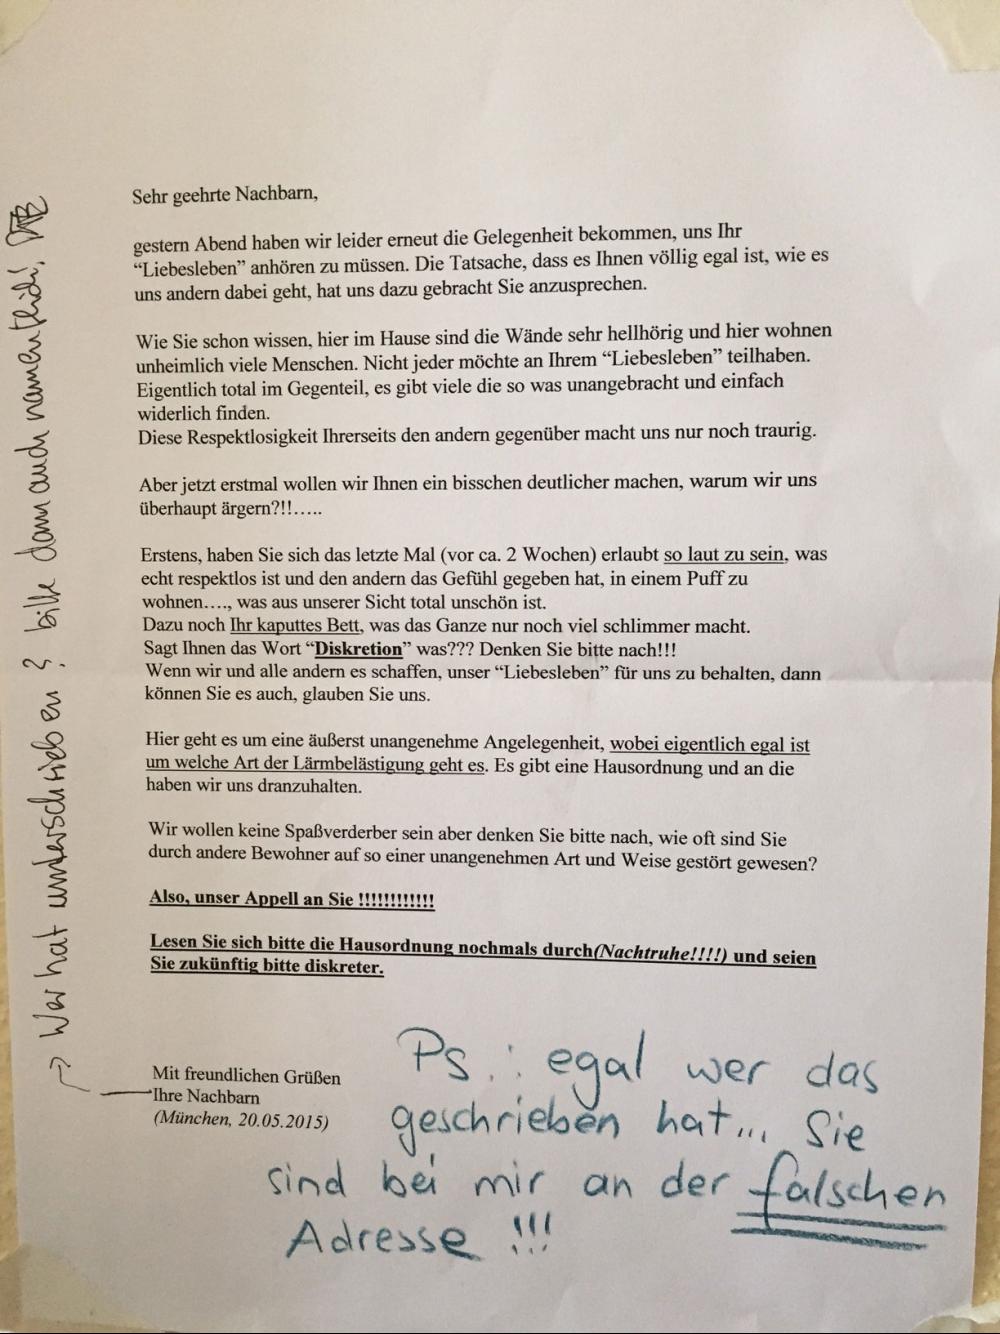 Sehr geehrte Nachbarn,
gestern Abend haben wir leider erneut die Gelegenheit bekommen, uns Ihr
“Liebesleben” anhören zu müssen. Die Tatsache, dass es Ihnen völlig egal ist, wie es
uns andern dabei geht, hat uns dazu gebracht Sie anzusprechen.
Wie Sie schon wissen, hier im Hause sind die Wände sehr hellhörig und hier wohnen
unheimlich viele Menschen. Nicht jeder möchte an Ihrem “Liebesleben” teilhaben.
Eigentlich total im Gegenteil, es gibt viele die so was unangebracht und einfach
widerlich finden.
Diese Respektlosigkeit Ihrerseits den andern gegenüber macht uns nur noch traurig.
Aber jetzt erstmal wollen wir Ihnen ein bisschen deutlicher machen, warum wir uns
überhaupt ärgern?!!…..
Erstens, haben Sie sich das letzte Mal (vor ca. 2 Wochen) erlaubt so laut zu sein, was
echt respektlos ist und den andern das Gefühl gegeben hat, in einem Puff zu
wohnen…., was aus unserer Sicht total unschön ist.
Dazu noch Ihr kaputtes Bett, was das Ganze nur noch viel schlimmer macht.
Sagt Ihnen das Wort “Diskretion” was??? Denken Sie bitte nach!!!
Wenn wir und alle andern es schaffen, unser “Liebesleben” für uns zu behalten, dann
können Sie es auch, glauben Sie uns.
Hier geht es um eine äußerst unangenehme Angelegenheit, wobei eigentlich egal ist
um welche Art der Lärmbelästigung geht es. Es gibt eine Hausordnung und an die
haben wir uns dranzuhalten.
Wir wollen keine Spaßverderber sein aber denken Sie bitte nach, wie oft sind Sie
durch andere Bewohner auf so einer unangenehmen Art und Weise gestört gewesen?
Also, unser Appell an Sie !!!!!!!!!!!!
Lesen Sie sich bitte die Hausordnung nochmals durch(Nachtruhe!!!!) und seien
Sie zukünftig bitte diskreter.
Mit freundlichen Grüßen
Ihre Nachbarn
(München, 20.05.2015)
→ Wer hat unterschrieben? bitte dann auch namentlich!
Ps.: egal wer das
geschrieben hat... Sie
sind bei mir an der falschen
Adresse !!!